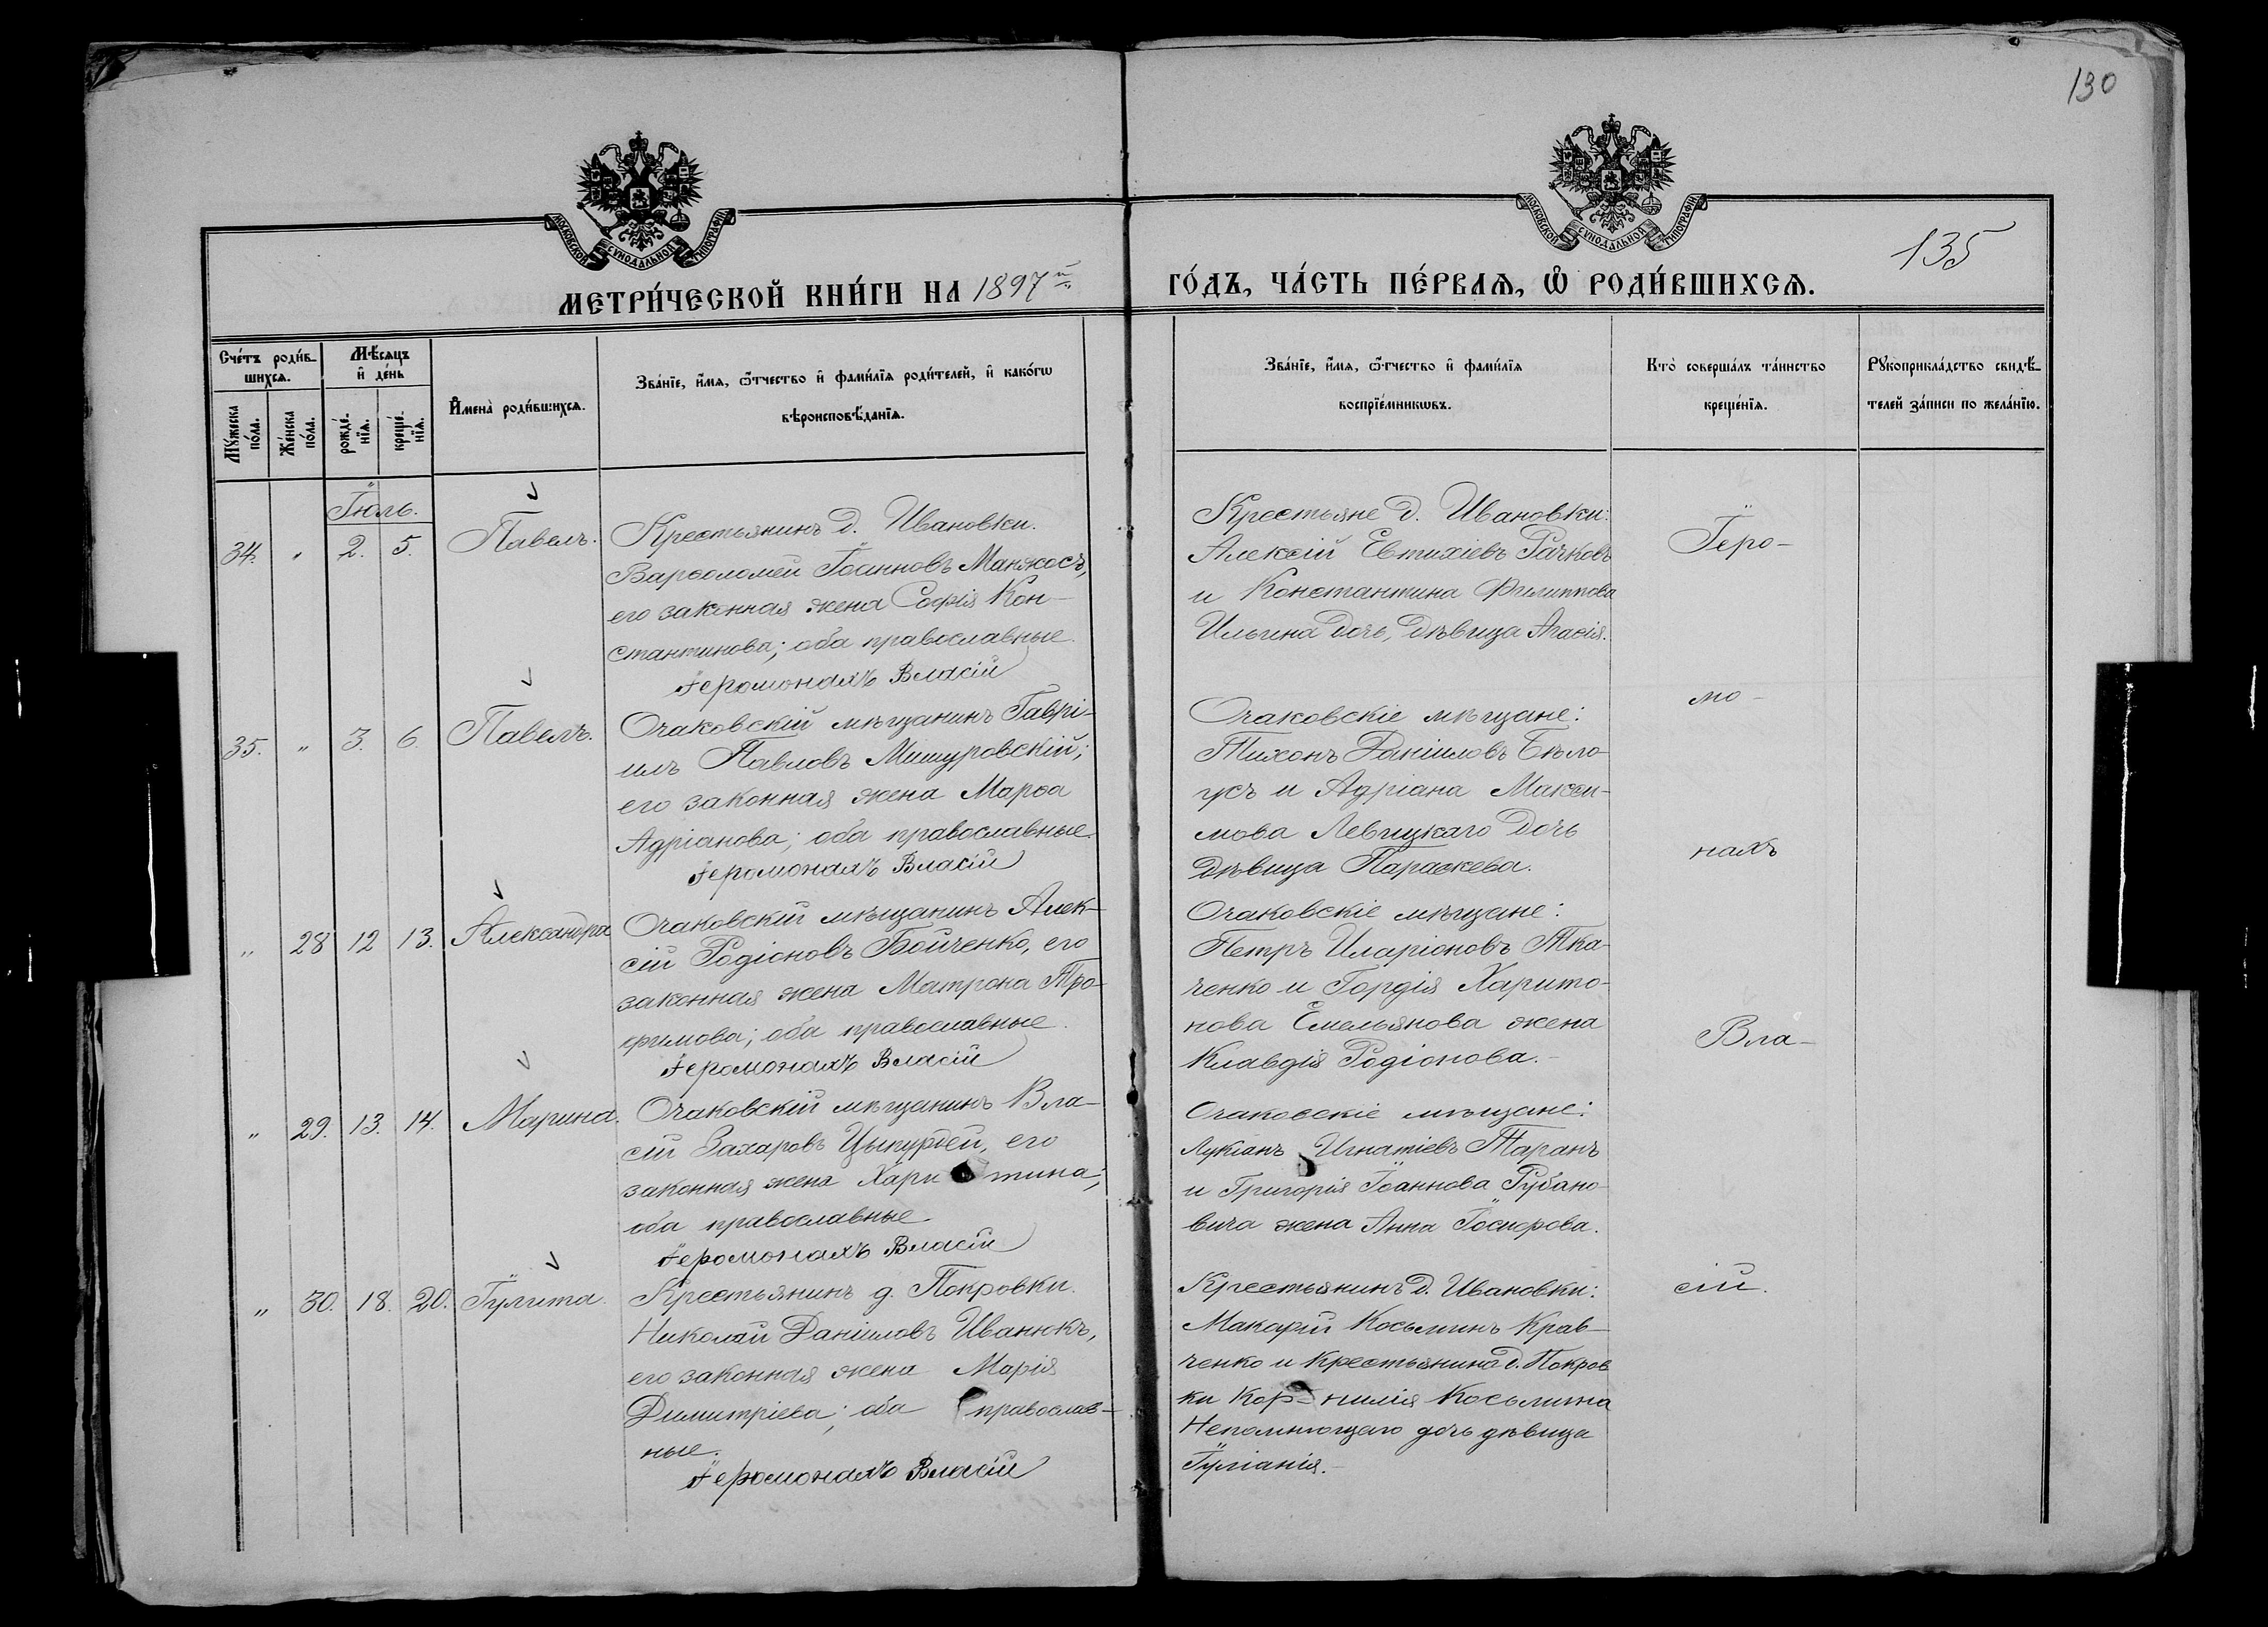 130
МОСКОВСКОЙ СУНОДАЛЬНОЙ ТИПОГРАФІИ
МОСКОВСКОЙ СУНОДАЛЬНОЙ ТИПОГРАФІИ
135
МЕТРИ́ЧЕСКОЙ КНИ́ГИ НА 1897й
ГО́ДЪ, ЧА́СТЬ ПЕ́РВАѦ, Ѽ РОДИ́ВШИХСѦ.
Сче́тъ роди́в-
шихсѧ.
Мꙋ́жеска по́ла.
Же́нска по́ла.
Мѣ́сѧцъ
и҆ де́нь
рожде́-
нїѧ.
креще́-
нїѧ.
И҆мена̀ роди́вшихсѧ.
Зва́нїе, и҆́мѧ, ѻ҆́тчество и҆ фами́лїѧ роди́телей, и҆ како́гѡ
вѣроисповѣ́данїѧ.
Зва́нїе, и҆́мѧ, ѻ҆́тчество и҆ фами́лїѧ
воспрїе́мникѡвъ.
Кто̀ соверша́лъ та́инство
креще́нїѧ.
Рꙋкоприкла́дство свидѣ́-
телей за́писи по жела́нїю.
Іюль.
34. " 2. 5. Павелъ.
Крестьянинъ д. Ивановки.
Варѳоломей Іоанновъ Манжосъ,
его законная жена Софія Кон-
стантинова; оба православные.
Іеромонахъ Власій
Крестьяне д. Ивановки:
Алексій Евтихіевъ Рачковъ
и Константина Филиппова
Ильина дочь, дѣвица Агаѳія.
Іеро-
35. " 3. 6. Павелъ.
Очаковскій мѣщанинъ Гаврі-
илъ Павловъ Мишуровскій;
его законная жена Марѳа
Адріанова; оба православные.
Іеромонахъ Власій
Очаковскіе мѣщане:
Тихонъ Даніиловъ Бѣло-
усъ и Адріана Макси-
мова Левицкаго дочь
дѣвица Параскева.
мо-
нахъ
" 28 12 13. Александра
Очаковскій мѣщанинъ Алек-
сій Родіоновъ Бойченко, его
законная жена Матрона Тро-
фимова; оба православные.
Іеромонахъ Власій
Очаковскіе мѣщане:
Петръ Иларіоновъ Тка-
ченко и Гордія Харито-
нова Емельянова жена
Клавдія Родіонова.-
Вла-
" 29. 13. 14. Марина.
Очаковскій мѣщанинъ Вла-
сій Захаровъ его
законная жена Хари тина;
оба православные.
Іеромонахъ Власій
Очаковскіе мѣщане:
Лукіанъ Игнатіевъ Таранъ
и Григорія Іоаннова Рубано-
вича жена Анна Іосифова.
" 30. 18. 20. Іулита.
Крестьянинъ д. Покровки.
Николай Даніиловъ Иванюкъ,
его законная жена Марія
Димитріева; оба православ-
ные.
Іеромонахъ Власій
Крестьянинъ д. Ивановки:
Макарій Косьминъ Крав-
ченко и крестьянина д. Покров
ки Кор- нилія Косьмина
Непомнющаго дочь дѣвица
Іуліанія.-
сій.